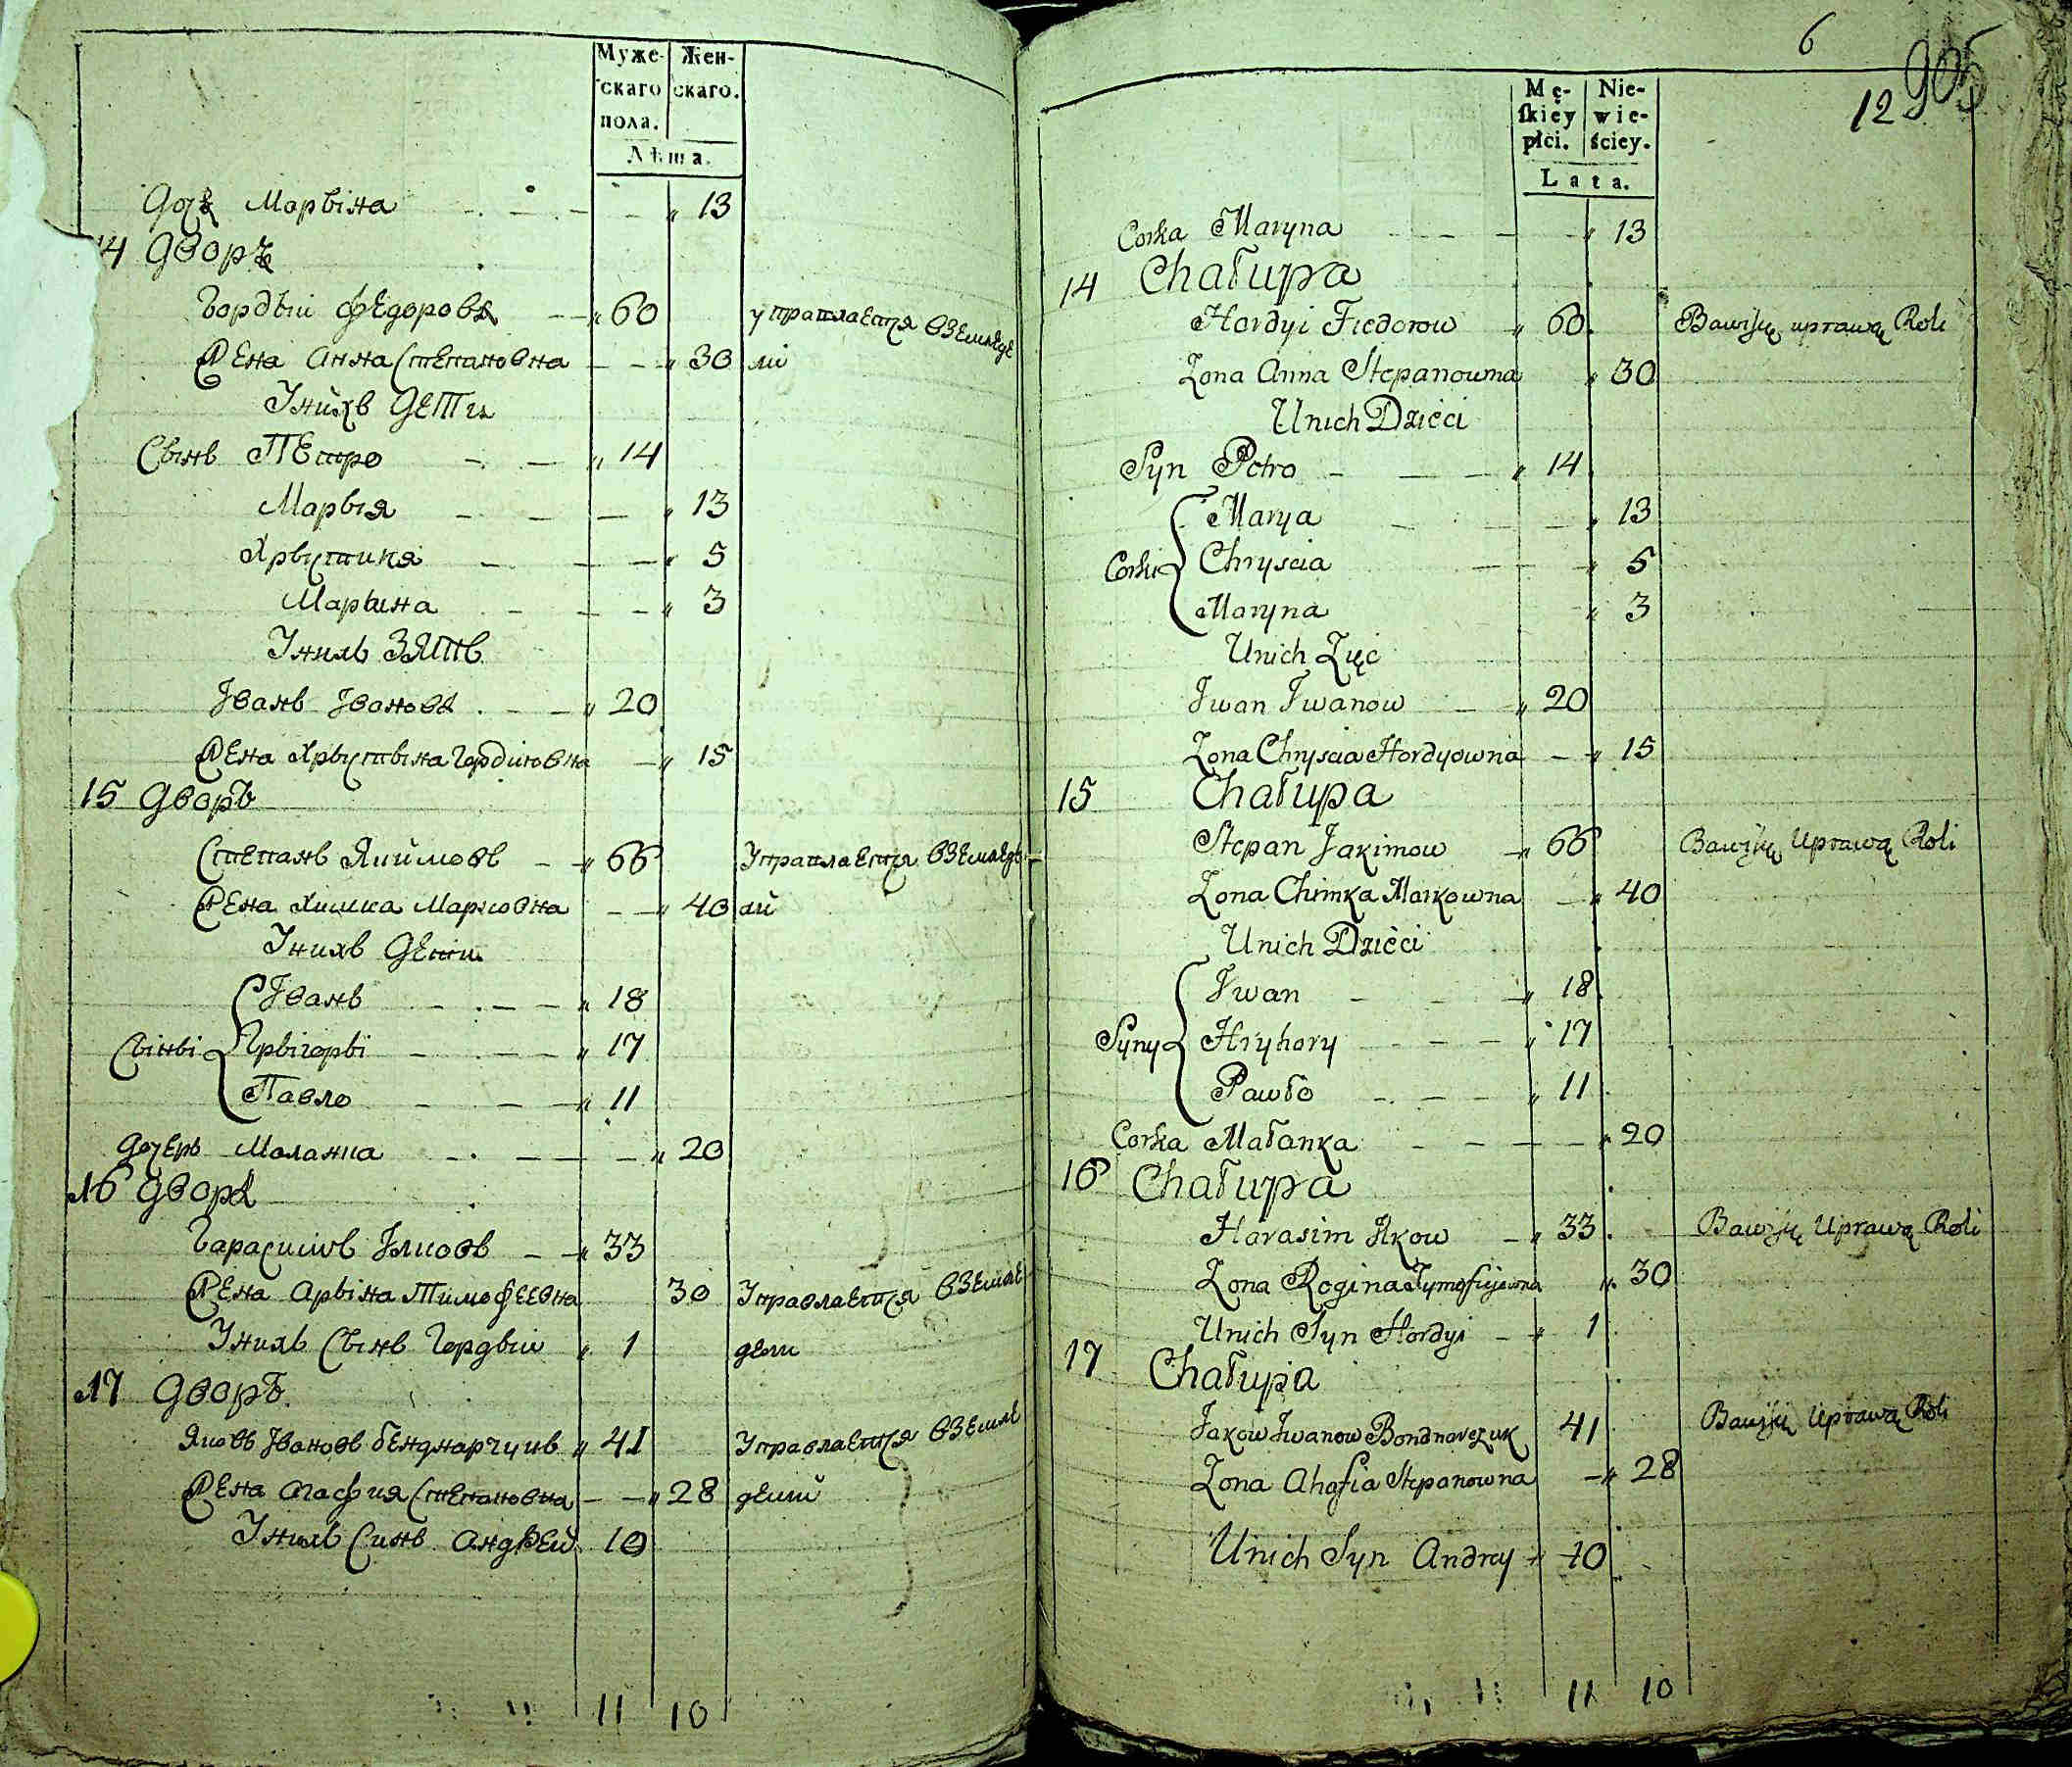 Муже-
скаго
пола.
Жен-
скаго.
Лѣта.
Дочъ Марѣна 13
14 Дворъ
Гордѣй Федоровъ 60
Жена Анна Степановна 30
Унихъ Дети
Сынъ Петро 14
Марыя 13
Хрыстина 5
Марына 3
Унихъ Зять
Іванъ Івановъ 20
Жена Хрыстына Гордіювна 15
15 Дворъ
Степанъ Якимовъ 66
Жена Химка Марковна 40
Унихъ Дети
Іванъ 18
Сыны Грыгоры 17
Павло 11
Дочеръ Маланка 20
16 Дворъ
Гарасимъ 33
Жена Арына Тимофеевна 30
Унихъ Сынъ Гордѣй 1
17 Дворъ
Яковъ Івановъ Бенднарчукъ 41
Жена Агафия Степановна 28
Унихъ Синъ Андрей 10
11 10
6
12 905
Mę-
ſkiey
płci.
Nie-
wie-
ściey.
Lata.
Corka Maryna 13
14 Chałupa
Hordyi Fiedorow 60 Bawiſię uprawą Roli
Żona Anna Stepanowna 30
Unich Dzieci
Syn Petro 14
Marya 13
Corki Chryscia 5
Maryna 3
Unich Zięć
Iwan Iwanow 20
Żona Chryscia Hordyowna 15
15 Chałupa
Stepan Jakimow 66 Bawiſię Uprawą Roli
Żona Chimka Markowna 40
Unich Dzieci
Iwan 18
Syny Hryhory 17
Pawło 11
Corka Małanka 20
16 Chałupa
Harasim Ilkow 33 Bawiſię Uprawą Roli
Żona Rogina Tymofiejewna 30
Unich Syn Hordyi 1
17 Chałupa
Jakow Iwanow Bondnarczuk 41 Bawiſię Uprawą Roli
Żona Ahafia Stepanowna 28
Unich Syn Andrey 10
11 10